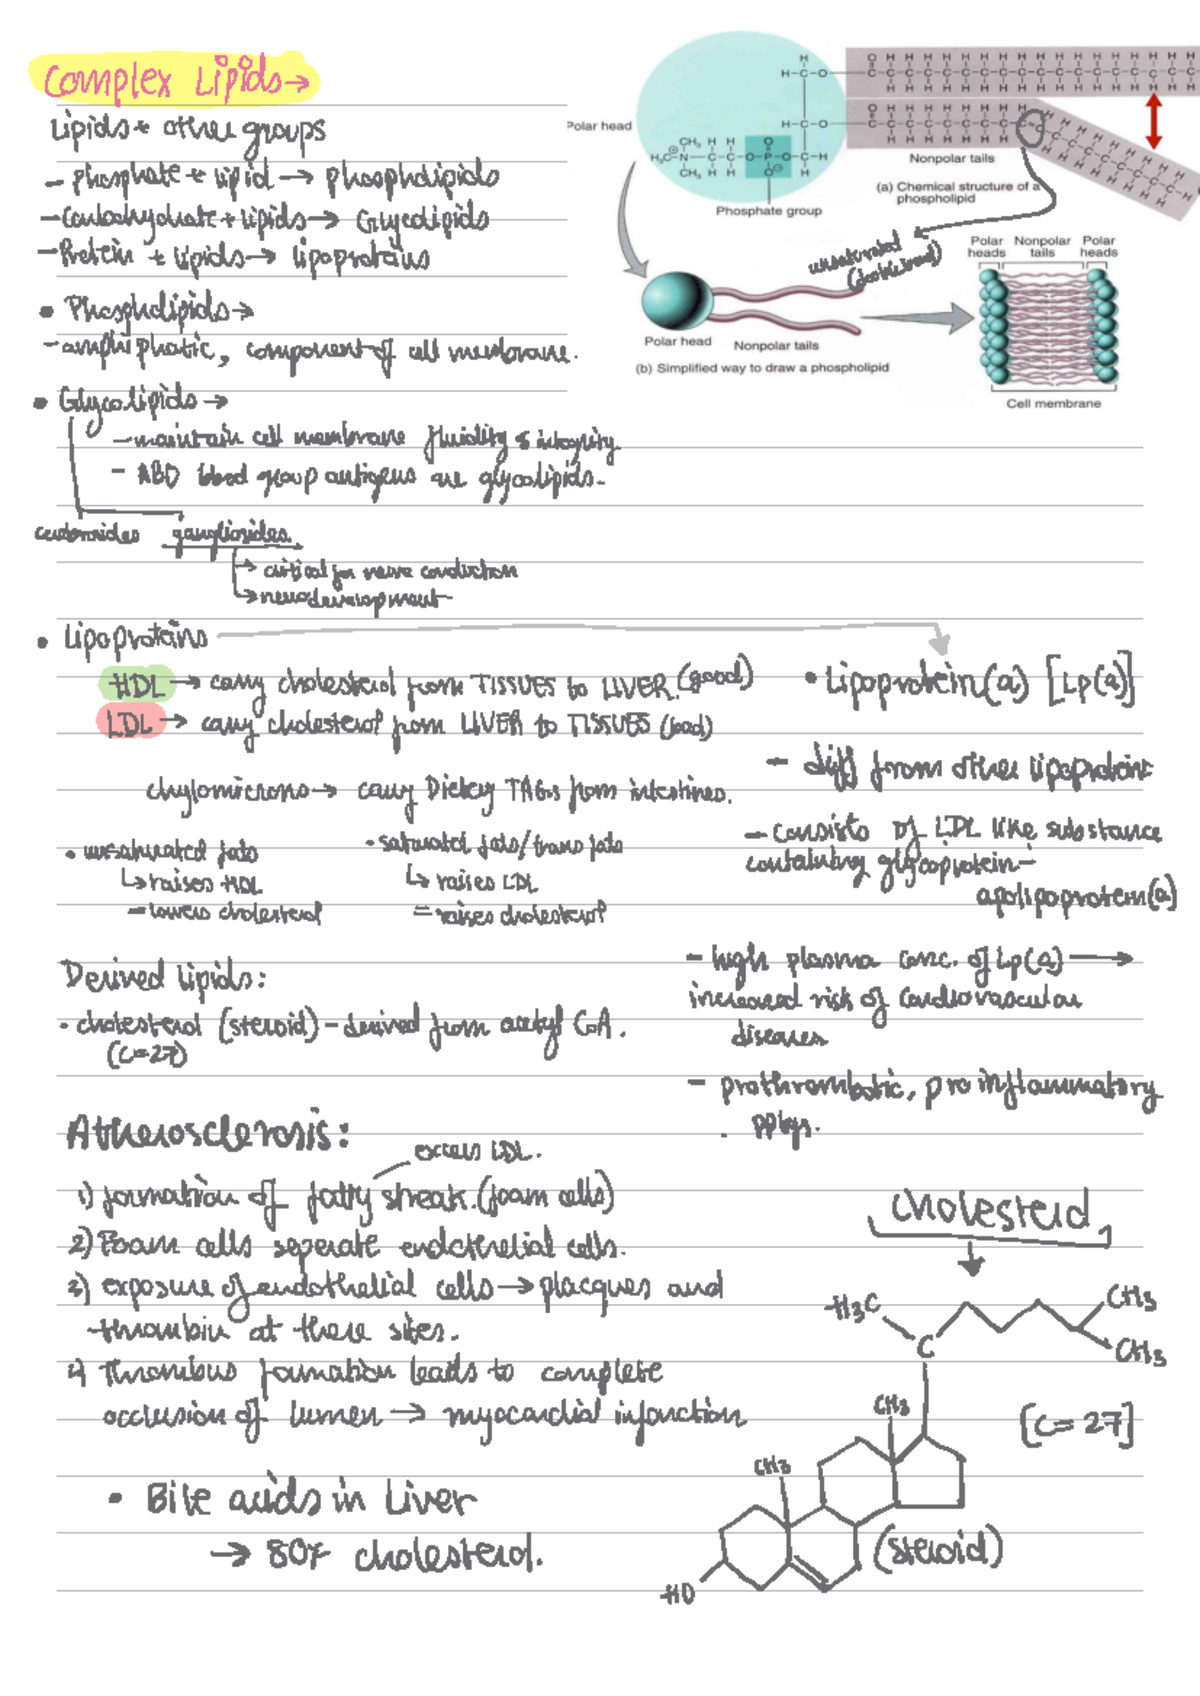 Complex Lipids→
Lipids + other groups
- phosphate + lipid → phospholipids
- Carbohydrate + lipids → Glycolipids
- Protein + lipids → lipoproteins
• Phospholipids →
- amphiphatic, component of cell membrane.
• Glycolipids →
- maintain cell membrane fluidity & integrity.
- ABO blood group antigens are glycolipids.
gangliosides.
→ critical for nerve conduction
→ neurodevelopment
Polar head
Phosphate group
Nonpolar tails
(a) Chemical structure of a
phospholipid
unsaturated
(double bond)
Polar head
Nonpolar tails
(b) Simplified way to draw a phospholipid
Polar heads
Nonpolar tails
Polar heads
Cell membrane
• Lipoproteins
HDL → carry cholesterol from TISSUES to LIVER. (good)
LDL → carry cholesterol from LIVER to TISSUES (bad)
chylomicrons → carry Dietary TAGs from intestines.
• unsaturated fats
↳ raises HDL
- lowers cholesterol
• saturated fats/trans fats
↳ raises LDL
= raises cholesterol
• Lipoprotein(a) [Lp(a)]
- diff from other lipoproteins
- consists of LDL like substance
containing glycoprotein -
apolipoprotein(a)
- high plasma conc. of Lp(a) →
increased risk of cardiovascular
diseases
- prothrombotic, pro inflammatory
Derived Lipids:
• cholesterol (steroid) - derived from acetyl CoA.
(C=27)
Atherosclerosis:
excess LDL.
1) formation of fatty streak. (foam cells)
2) Foam cells seperate endothelial cells.
3) exposure of endothelial cells → placques and
thrombin at these sites.
4) Thrombus formation leads to complete
occlusion of lumen → myocardial infarction
• Bile acids in Liver
→ 80% cholesterol.
Cholesterol
H3C
C
CH3
CH3
CH3
CH3
[C= 27]
(steroid)
HO